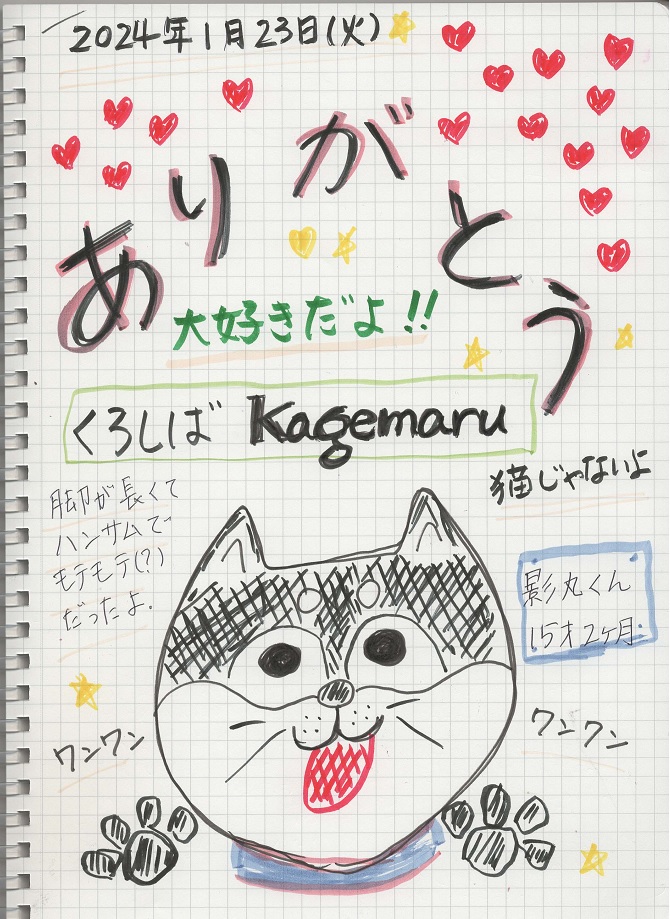 2024年1月23日(火)
ありがとう
大好きだよ!!
くろしば Kagemaru
猫じゃないよ
脚が長くて
ハンサムで
モテモテ(?)
だったよ.
影丸くん
15才2ヶ月
ワンワン
ワンワン